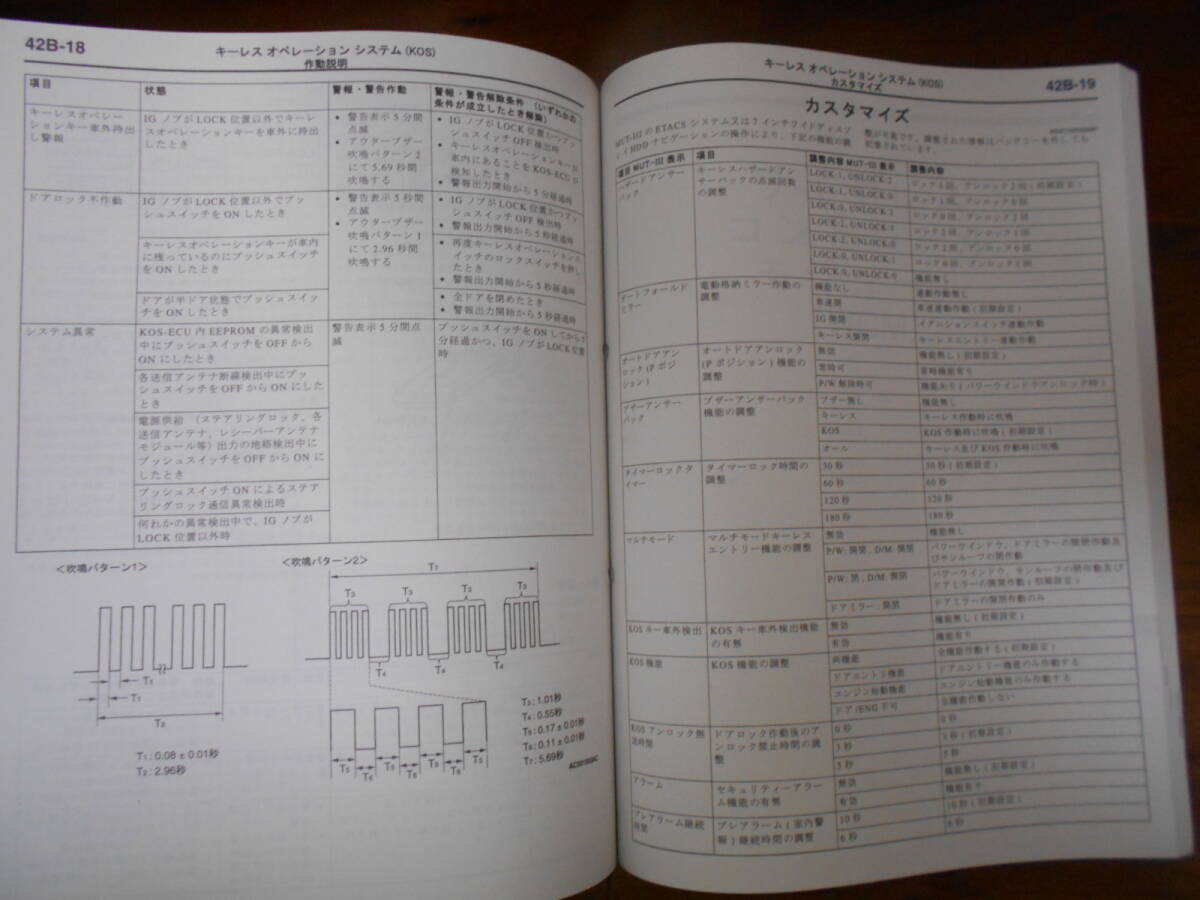 42B-18
キーレス オペレーション システム (KOS)
作動説明
項目
状態
警報・警告作動
警報・警告解除条件 (いずれかの
条件が成立したとき解除)
キーレスオペレー
ションキー車外持出
し警報
IG ノブが LOCK 位置以外でキーレ
スオペレーションキーを車外に持出
したとき
• 警告表示 5 分間
点滅
• アウターブザー
吹鳴パターン 2
にて 5.69 秒間
吹鳴する
• IG ノブが LOCK 位置かつプッ
シュスイッチ OFF 検出時
• キーレスオペレーションキーが
車内にあることを KOS-ECU が
検知したとき
• 警報出力開始から 5 分経過時
ドアロック不作動
IG ノブが LOCK 位置以外でプッ
シュスイッチを ON したとき
• 警告表示 5 秒間
点滅
• アウターブザー
吹鳴パターン 1
にて 2.96 秒間
吹鳴する
• IG ノブが LOCK 位置かつプッ
シュスイッチ OFF 検出時
• 警報出力開始から 5 秒経過時
キーレスオペレーションキーが車内
に残っているのにプッシュスイッチ
を ON したとき
• 再度キーレスオペレーションス
イッチのロックスイッチを押し
たとき
• 警報出力開始から 5 秒経過時
ドアが半ドア状態でプッシュスイッ
チを ON したとき
• 全ドアを閉めたとき
• 警報出力開始から 5 秒経過時
システム異常
KOS-ECU 内 EEPROM の異常検出
中にプッシュスイッチを OFF から
ON にしたとき
警告表示 5 分間点
滅
プッシュスイッチを ON してから 5
分経過かつ、IG ノブが LOCK 位置
時
各送信アンテナ断線検出中にプッ
シュスイッチを OFF から ON にした
とき
電源供給 (ステアリングロック、各
送信アンテナ、レシーバーアンテナ
モジュール等) 出力の地絡検出中に
プッシュスイッチを OFF から ON に
したとき
プッシュスイッチ ON によるステア
リングロック通信異常検出時
何れかの異常検出中で、IG ノブが
LOCK 位置以外時
<吹鳴パターン1>
<吹鳴パターン2>
T7
T3 T3 T3 T3
T4 T4 T4
T1
T1
T2
T5 T6 T5 T6 T5 T6 T5
T1: 0.08 ± 0.01秒
T2: 2.96秒
T3: 1.01秒
T4: 0.55秒
T5: 0.17 ± 0.01秒
T6: 0.11 ± 0.01秒
T7: 5.69秒
キーレス オペレーション システム (KOS)
カスタマイズ
42B-19
カスタマイズ
MUT-III の ETACS システム又は 7 インチワイドディスプ
レイ HDD ナビゲーションの操作により、下記の機能の調
整が可能です。調整された情報はバッテリーを外しても
記憶されています。
項目 MUT-III 表示
項目
調整内容 MUT-III 表示
調整内容
ハザードアンサー
バック
キーレスハザードアン
サーバックの点滅回数
の調整
LOCK:1, UNLOCK:2
ロック 1 回、アンロック 2 回 ( 初期設定 )
LOCK:1, UNLOCK:0
ロック 1 回、アンロック 0 回
LOCK:0, UNLOCK:2
ロック 0 回、アンロック 2 回
LOCK:2, UNLOCK:1
ロック 2 回、アンロック 1 回
LOCK:2, UNLOCK:0
ロック 2 回、アンロック 0 回
LOCK:0, UNLOCK:1
ロック 0 回、アンロック 1 回
LOCK:0, UNLOCK:0
機能無し
オートフォールド
ミラー
電動格納ミラー作動の
調整
機能なし
連動作動無し
車速開
車速連動作動 ( 初期設定 )
IG 開閉
イグニションスイッチ連動作動
キーレス開閉
キーレスエントリー連動作動
オートドアアン
ロック (P ポジ
ション )
オートドアアンロック
(P ポジション ) 機能の
調整
無効
機能無し ( 初期設定 )
常時可
常時機能有り
P/W 解除時可
機能あり ( パワーウインドウアンロック時 )
ブザーアンサー
バック
ブザーアンサーバック
機能の調整
ブザー無し
機能無し
キーレス
キーレス作動時に吹鳴
KOS
KOS 作動時に吹鳴 ( 初期設定 )
オール
キーレス及び KOS 作動時に吹鳴
タイマーロックタ
イマー
タイマーロック時間の
調整
30 秒
30 秒 ( 初期設定 )
60 秒
60 秒
120 秒
120 秒
180 秒
180 秒
マルチモード
マルチモードキーレス
エントリー機能の調整
無効
機能無し
P/W: 開閉 , D/M: 開閉
パワーウインドウ、ドアミラーの開閉作動及
びサンルーフの閉作動
P/W: 閉 , D/M: 開閉
パワーウインドウ、サンルーフの閉作動及び
ドアミラーの開閉作動 ( 初期設定 )
ドアミラー : 開閉
ドアミラーの開閉作動のみ
KOS キー車外検出
KOS キー車外検出機能
の有無
無効
機能無し ( 初期設定 )
有効
機能有り
KOS 機能
KOS 機能の調整
両機能
全機能作動する ( 初期設定 )
ドアエントリ機能
ドアエントリー機能のみ作動する
エンジン始動機能
エンジン始動機能のみ作動する
ドア /ENG 不可
全機能作動しない
KOS アンロック無
効時間
ドアロック作動後のア
ンロック禁止時間の調
整
0 秒
0 秒
3 秒
3 秒 ( 初期設定 )
5 秒
5 秒
アラーム
セキュリティーアラー
ム機能の有無
無効
機能無し ( 初期設定 )
有効
機能有り
プレアラーム継続
時間
プレアラーム ( 室内警
報 ) 継続時間の調整
10 秒
10 秒 ( 初期設定 )
6 秒
6 秒